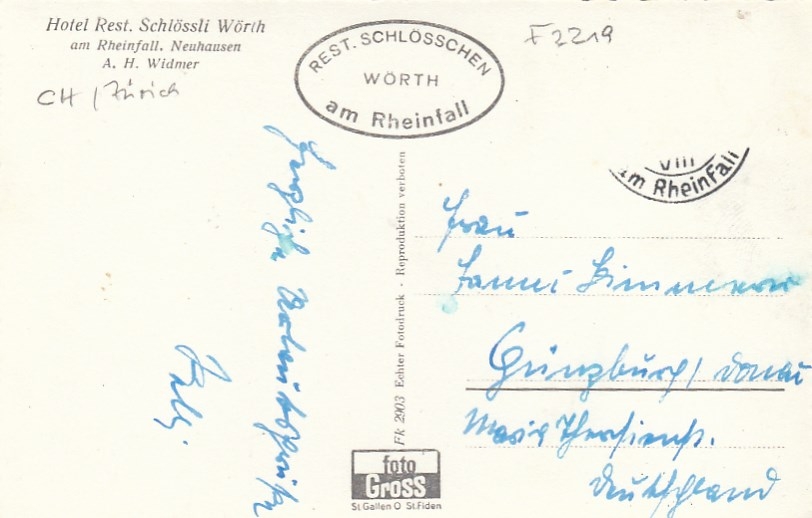 Hotel Rest. Schlössli Wörth
am Rheinfall. Neuhausen
A. H. Widmer
CH / Zürich
REST. SCHLÖSSCHEN
WÖRTH
am Rheinfall
F 2219
VIII
am Rheinfall
Herzliche
Fk 2903 Echter Fotodruck · Reproduktion verboten
Frau
Fanni
Günzburg / Donau
Deutschland
foto
Gross
St Gallen O St. Fiden